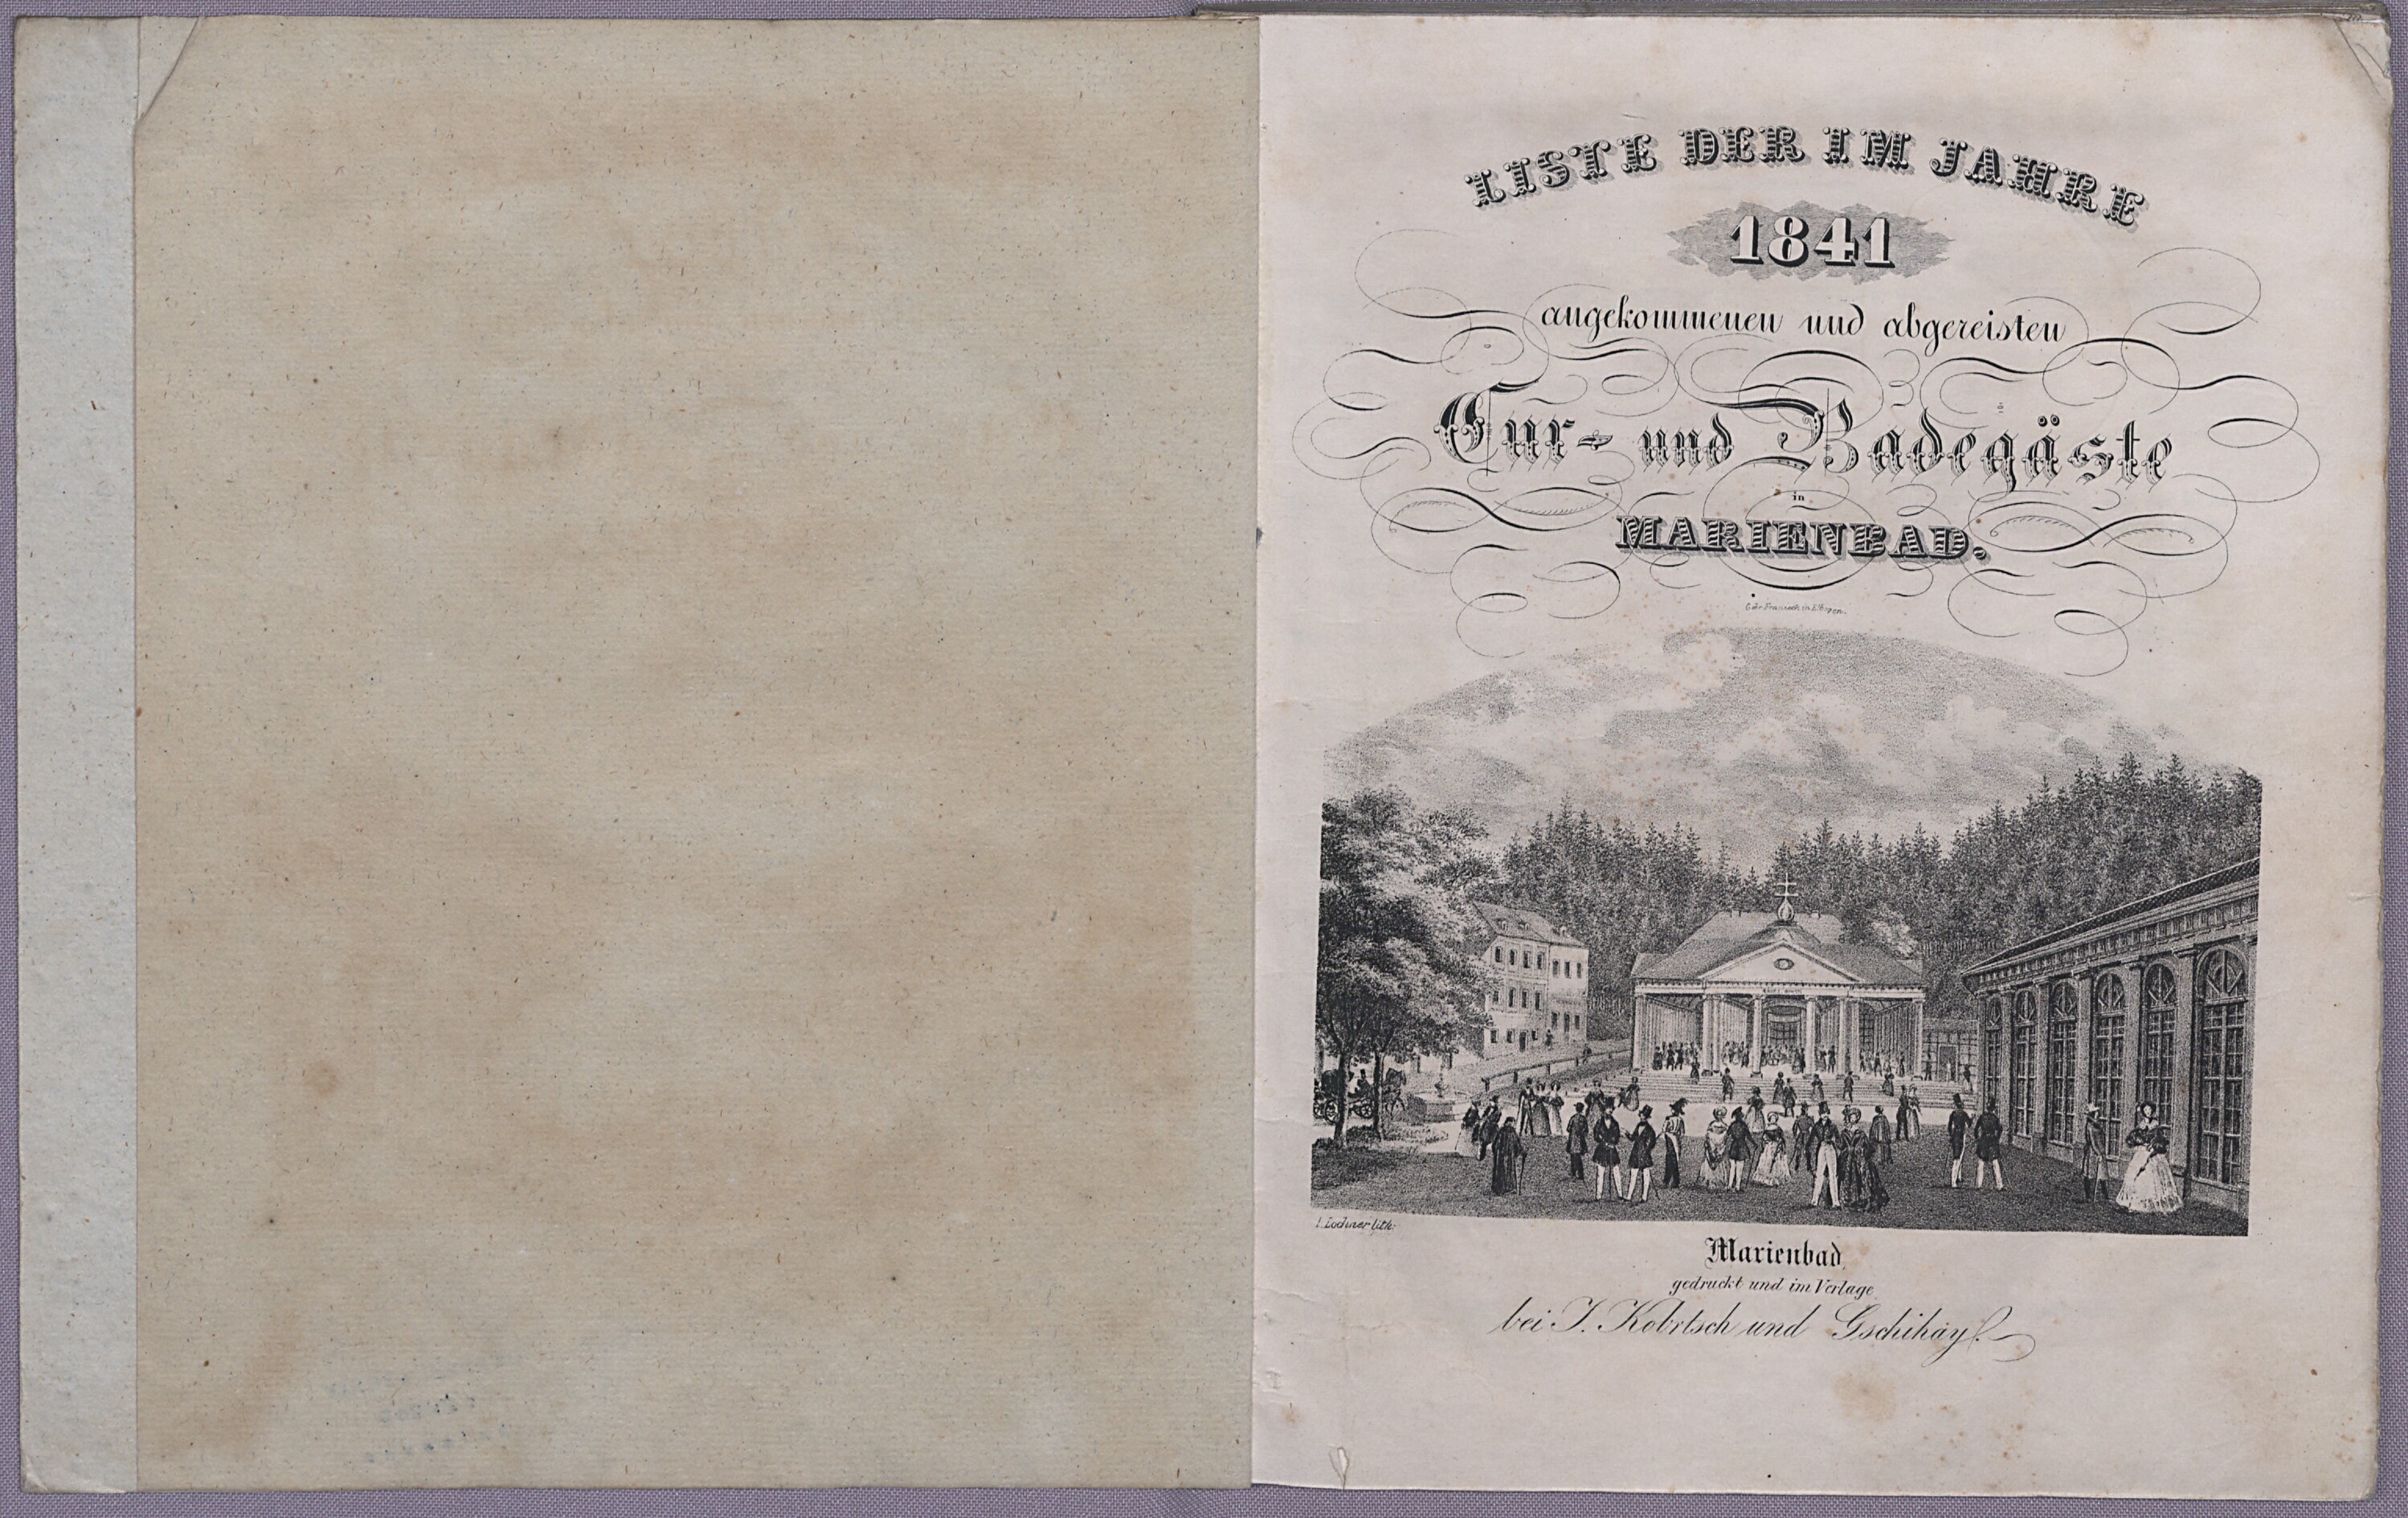 LISTE DER IM JAHRE
1841
angekommenen und abgereisten
Cur- und Badegäste
in
MARIENBAD.
in Elbogen.
Lochner lith:
Marienbad,
gedruckt und im Verlage
bei J. Kobrtsch und Gschihay.